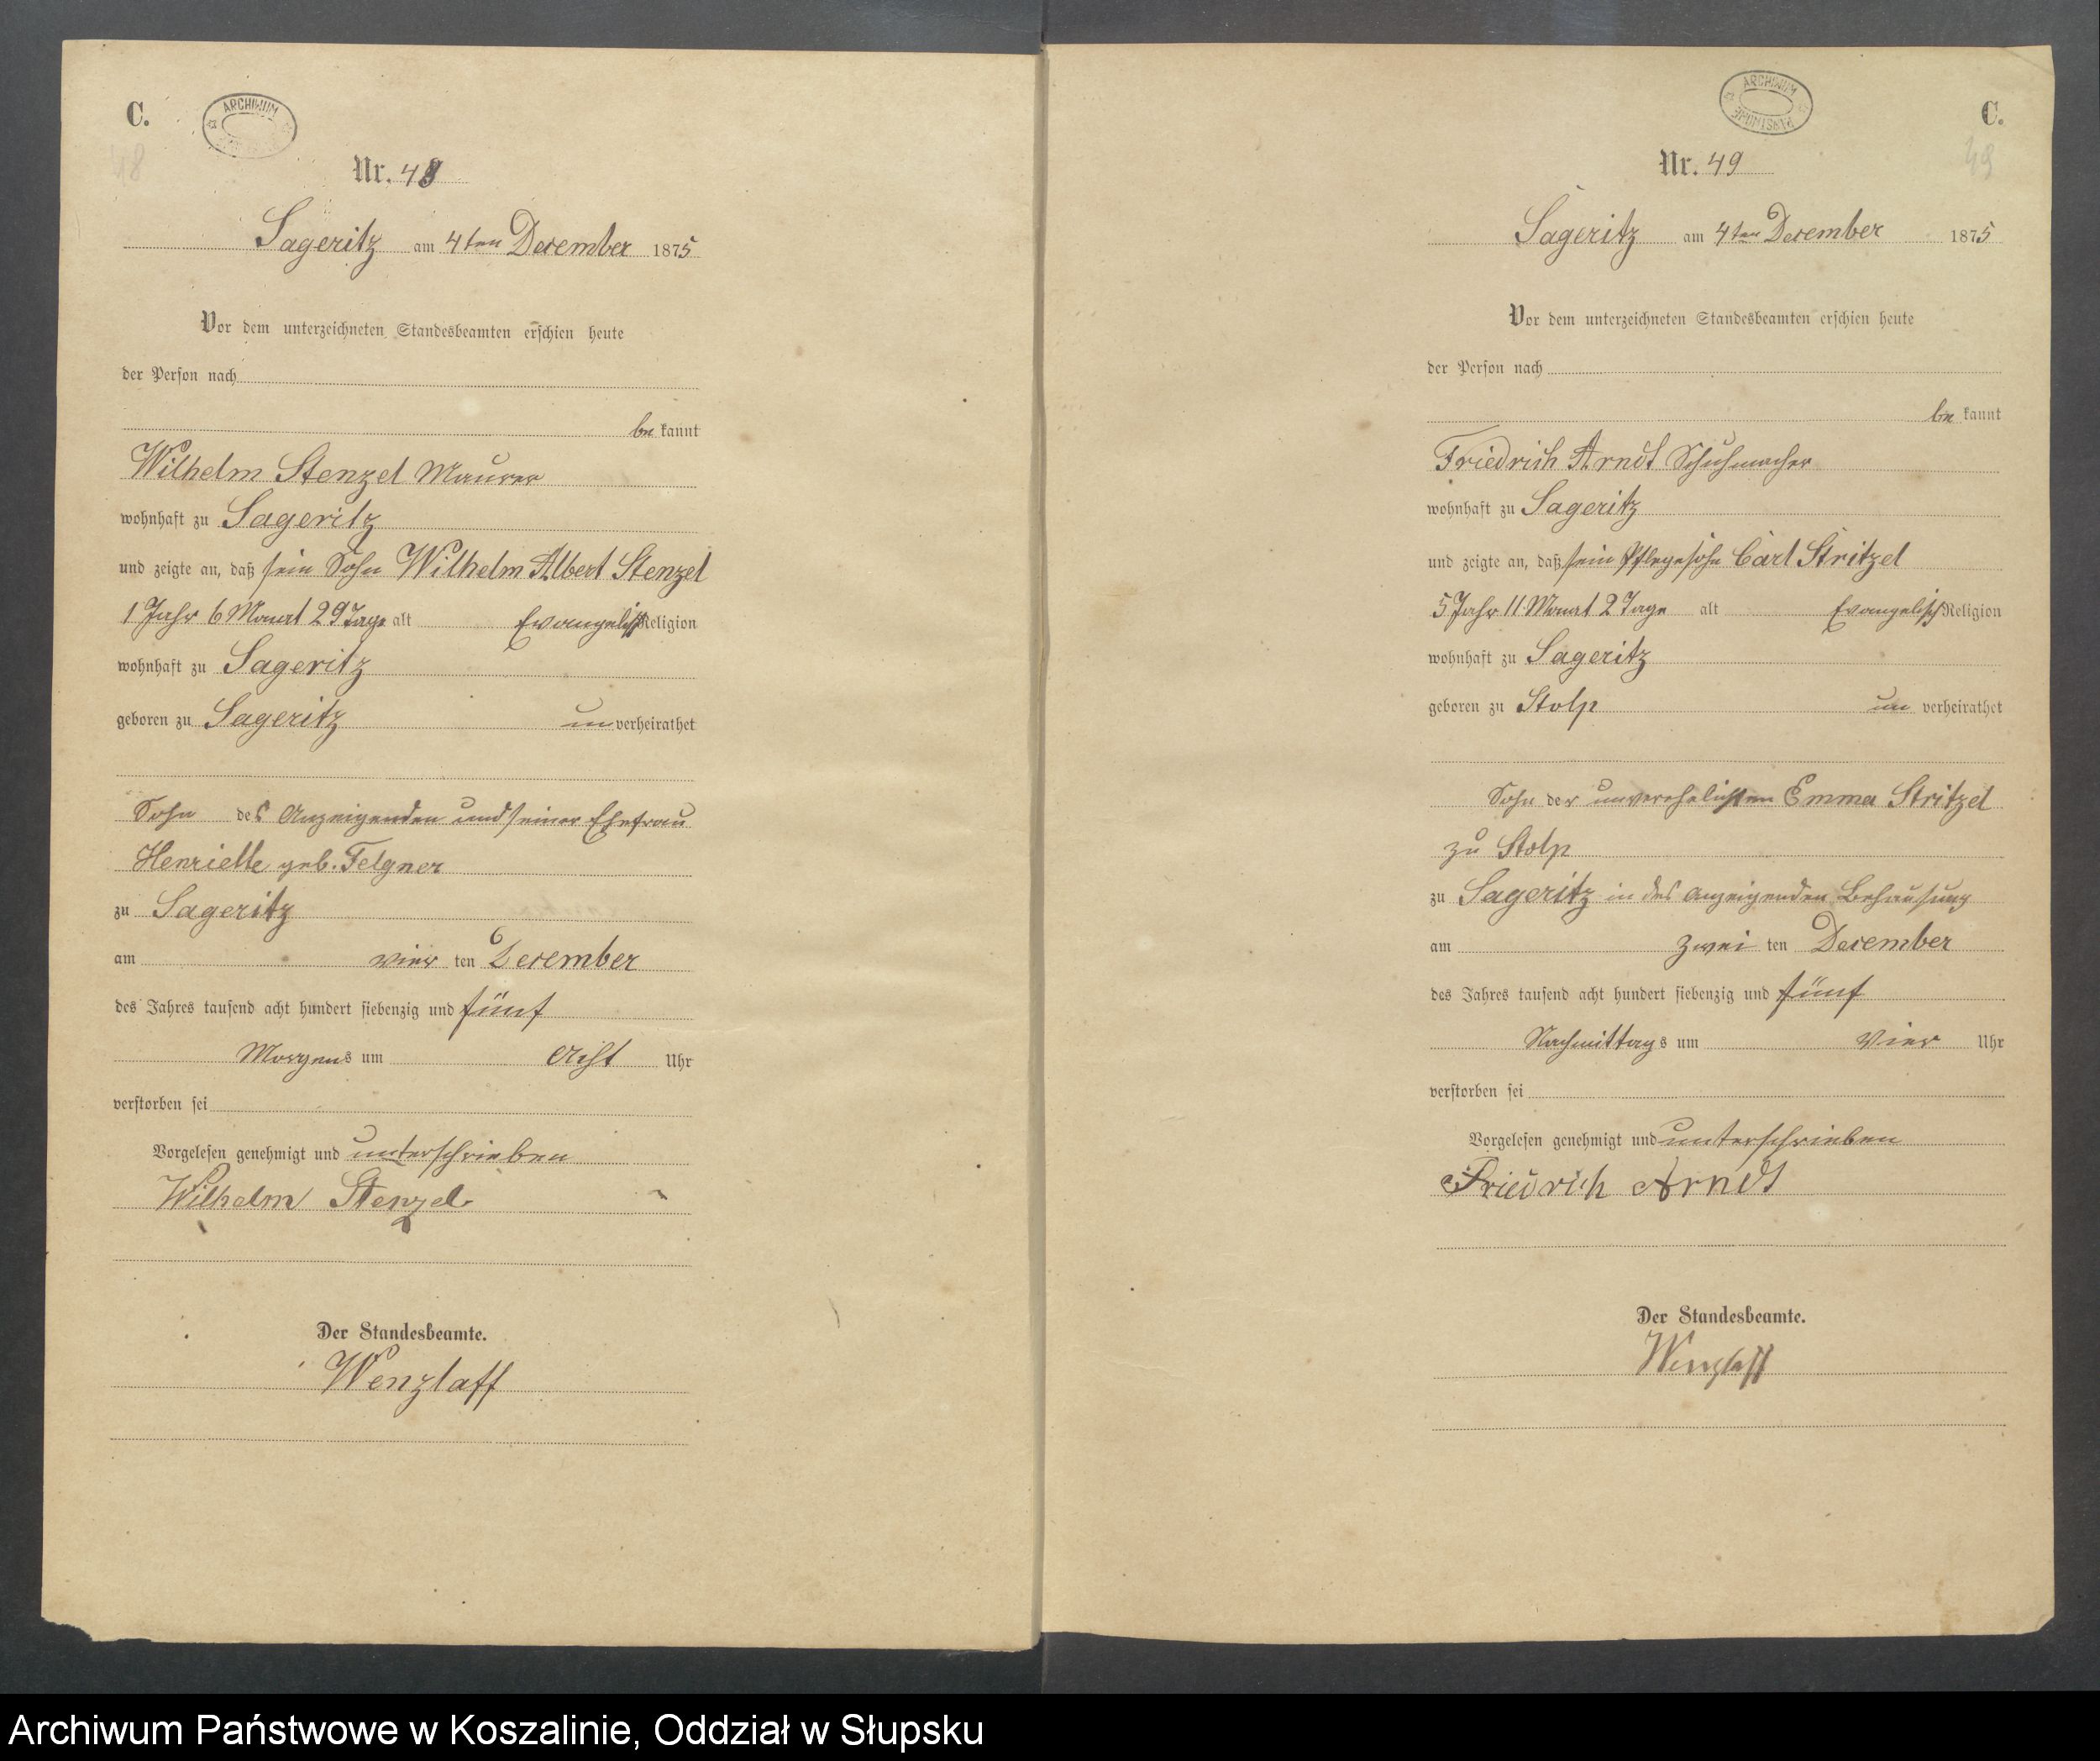 C.
ARCHIWUM
48
Nr. 48
Sageritz am 4ten December 1875
Vor dem unterzeichneten Standesbeamten erschien heute
der Person nach
be kannt
Wilhelm Stenzel Maurer
wohnhaft zu Sageritz
und zeigte an, daß sein Sohn Wilhelm Albert Stenzel
1 Jahr 6 Monat 29 Tage alt Evangelisch Religion
wohnhaft zu Sageritz
geboren zu Sageritz un verheirathet
Sohn des Anzeigenden und seiner Ehefrau
Henriette geb. Felgner
zu Sageritz
am vier ten December
des Jahres tausend acht hundert siebenzig und fünf
Morgens um Acht Uhr
verstorben sei
Vorgelesen genehmigt und unterschrieben
Wilhelm Stenzel
Der Standesbeamte.
Wenzlaff
ARCHIWUM
PAŃSTWOWE
C.
49
Nr. 49
Sageritz am 4ten December 1875
Vor dem unterzeichneten Standesbeamten erschien heute
der Person nach
be kannt
Friedrich Arndt Schuhmacher
wohnhaft zu Sageritz
und zeigte an, daß sein Pflegesohn Carl Stritzel
5 Jahr 11 Monat 2 Tage alt Evangelisch Religion
wohnhaft zu Sageritz
geboren zu Stolp un verheirathet
Sohn der unverehelichten Emma Stritzel
zu Stolp
zu Sageritz in des Anzeigenden Behausung
am zwei ten December
des Jahres tausend acht hundert siebenzig und fünf
Nachmittags um Vier Uhr
verstorben sei
Vorgelesen genehmigt und unterschrieben
Friedrich Arndt
Der Standesbeamte.
Wenzlaff
Archiwum Państwowe w Koszalinie, Oddział w Słupsku